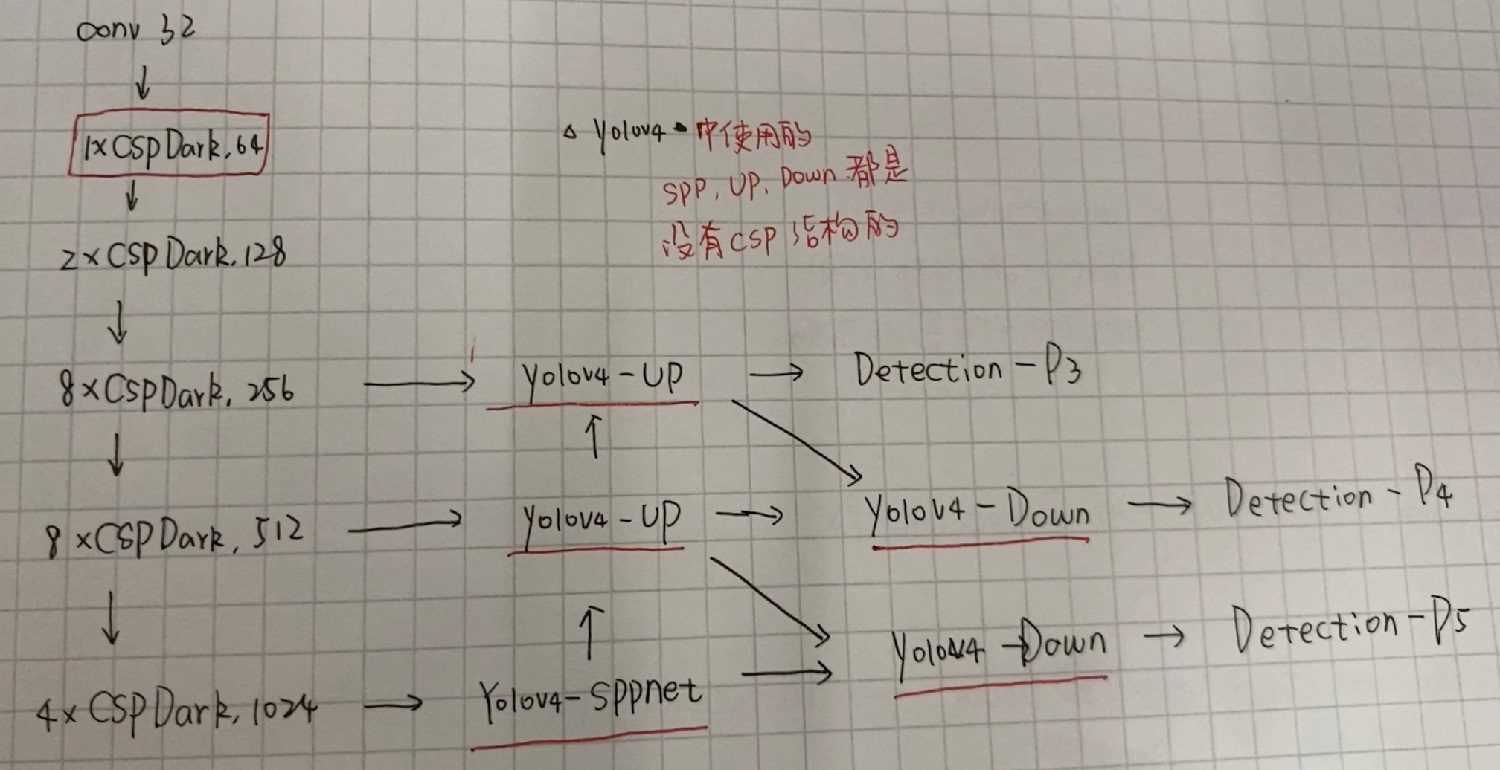 conv 32
1×CSPDark,64
△ Yolov4 中使用的
SPP, UP, Down 都是
没有CSP结构的
2×CSPDark,128
8×CSPDark, 256 → Yolov4-UP → Detection-P3
8×CSPDark, 512 → Yolov4-UP → Yolov4-Down → Detection-P4
4×CSPDark,1024 → Yolov4-SPPnet → Yolov4-Down → Detection-P5